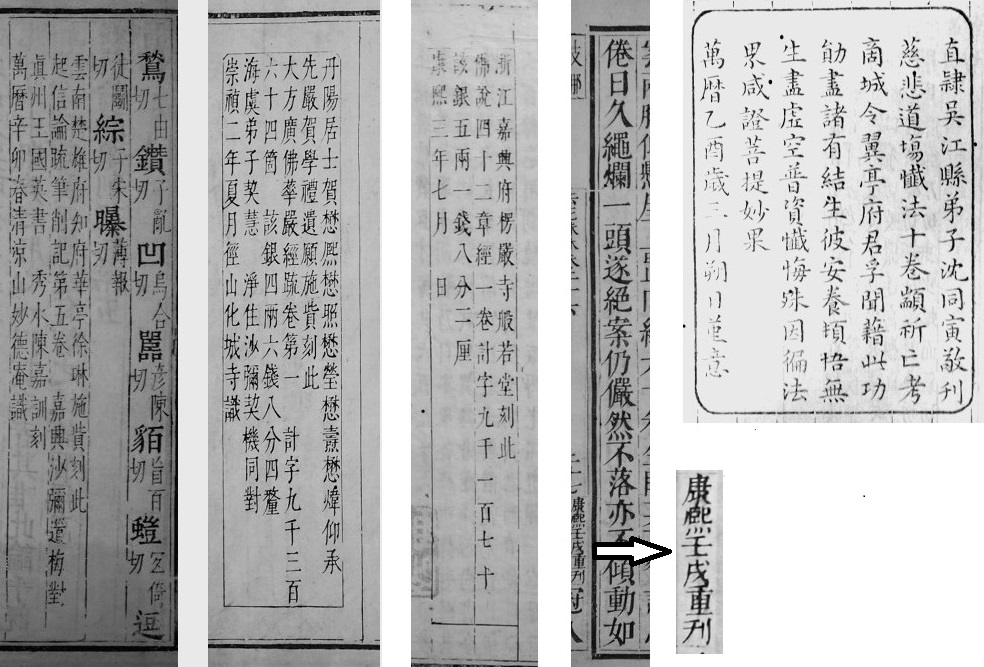 鶖七由切鑽子亂切凹烏合切嚚彥陳切貊盲百切螘倚切逗
徒鬭切綜子宋切曝薄報切
雲南楚雄府知府華亭徐琳施貲刻此
起信論疏筆削記第五卷 嘉興沙彌遣梅對
眞州王國英書 秀水陳嘉訓刻
萬曆辛卯春清涼山妙德庵識
丹陽居士賀懋熈懋照懋瑩懋燾懋煒仰承
先嚴賀學禮遺願施貲刻此
大方廣佛華嚴經疏卷第一 計字九千三百
六十四箇 該銀四兩六錢八分四釐
海虞弟子契慧 淨住沙彌契機同對
崇禎二年夏月徑山化城寺識
浙江嘉興府楞嚴寺般若堂刻此
佛說四十二章經一卷計字九千一百七十
該銀五兩一錢八分二厘
康熙三年七月 日
倦日久繩爛一頭遂絕案仍儼然不落亦不傾動如
康熙壬戌重刊 冠八
直隸吳江縣弟子沈同寅敬刊
慈悲道塲懺法十卷顓祈亡考
商城令翼亭府君孚聞藉此功
勛盡諸有結生彼安養頓悟無
生盡虛空普資懺悔殊因徧法
界咸證菩提妙果
萬曆乙酉歲三月朔日堇意
康熙壬戌重刊